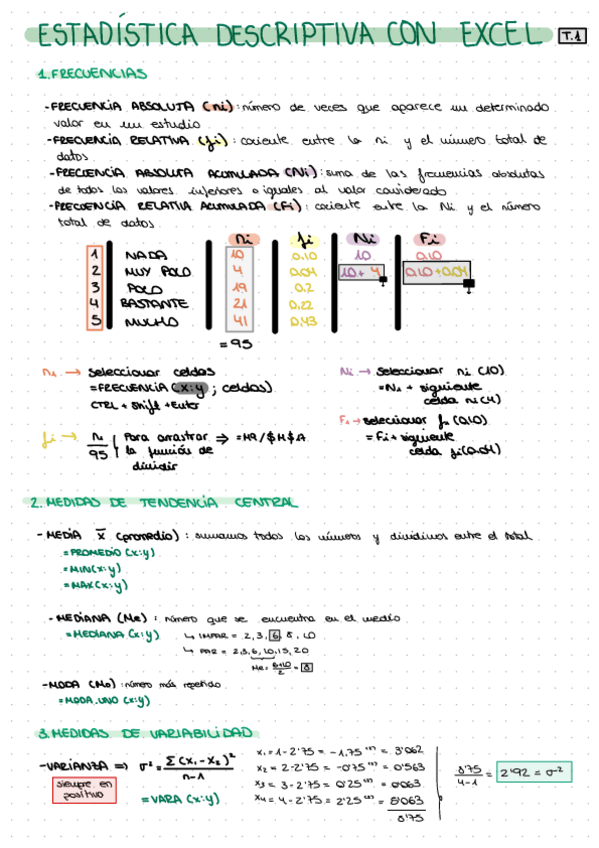 ESTADÍSTICA DESCRIPTIVA CON EXCEL T.1
1. FRECUENCIAS
- FRECUENCIA ABSOLUTA (ni): número de veces que aparece un determinado
valor en un estudio
- FRECUENCIA RELATIVA (fi): cociente entre la ni y el número total de
datos
- FRECUENCIA ABSOLUTA ACUMULADA (Ni): suma de las frecuencias absolutas
de todos los valores inferiores o iguales al valor considerado
- FRECUENCIA RELATIVA ACUMULADA (Fi): cociente entre la Ni y el número
total de datos
ni fi Ni Fi
1 NADA 10 0.10 10 0.10
2 MUY POCO 4 0.04 10+ 4 0.10+0.04
3 POCO 19 0.2
4 BASTANTE 21 0.22
5 MUCHO 41 0.43
= 95
n1 → seleccionar celdas
=FRECUENCIA (x:y ; celdas)
CTRL + Shift + Enter
Ni → seleccionar ni (10)
=N1 + siguiente
celda ni (4)
Fi → seleccionar fi (0.10)
= Fi + siguiente
celda fi (0.04)
fi → ni / 95 Para arrastrar ⇒ =H2/$H$A
la función de
dividir
2. MEDIDAS DE TENDENCIA CENTRAL
- MEDIA x̄ (promedio): sumamos todos los números y dividimos entre el total
=PROMEDIO (x:y)
=MIN(x:y)
=MAX(x:y)
- MEDIANA (Me): número que se encuentra en el medio
=MEDIANA (x:y) ↳ IMPAR = 2, 3, 6, 8, 10
↳ PAR = 2,3,6,10,15,20
Me: 6+10 / 2 = 8
- MODA (Mo): número más repetido
=MODA.UNO (x:y)
3. MEDIDAS DE VARIABILIDAD
- VARIANZA ⇒ σ² = Σ(x1 - x2)² / n-1
siempre en
positivo
=VARA (x:y)
x1 = 1 - 2'75 = -1,75 = 3'062
x2 = 2 - 2'75 = -0'75 = 0'563
x3 = 3 - 2'75 = 0'25 = 0'063
x4 = 4 - 2'75 = 2'25 = 5'063
8'75
8'75 / 4-1 = 2'92 = σ²